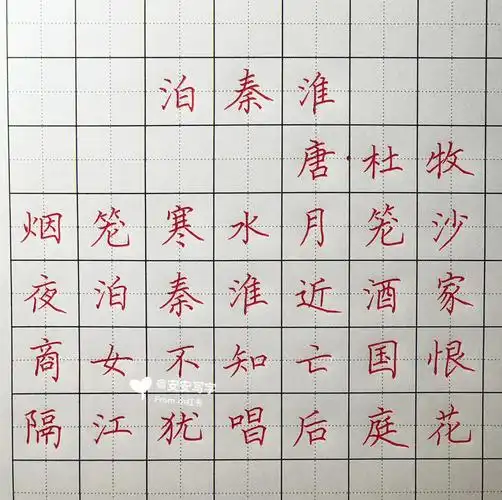 泊秦淮
唐·杜牧
烟笼寒水月笼沙
夜泊秦淮近酒家
商女不知亡国恨
隔江犹唱后庭花
@安安写字
From 小红书